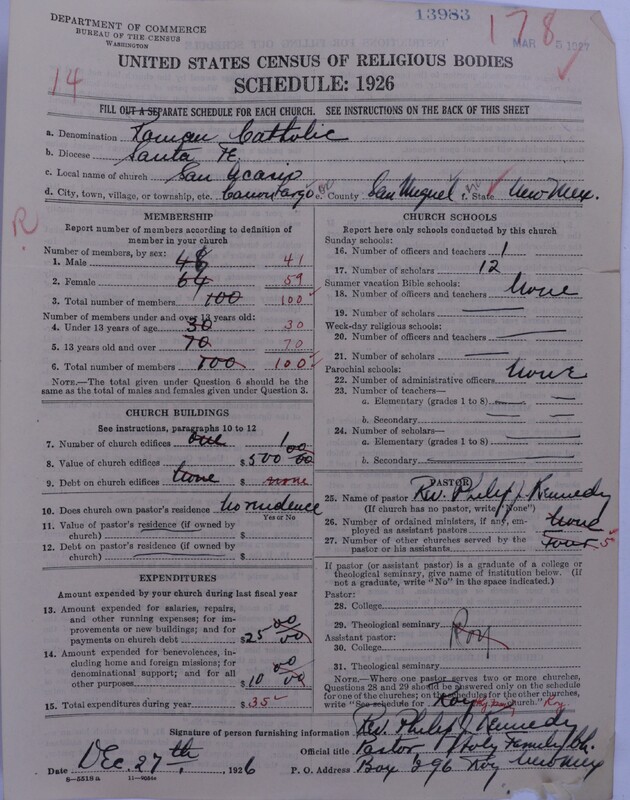 13983
178
DEPARTMENT OF COMMERCE
BUREAU OF THE CENSUS
WASHINGTON
MAR 5 1927
UNITED STATES CENSUS OF RELIGIOUS BODIES
SCHEDULE: 1926
14
FILL OUT A SEPARATE SCHEDULE FOR EACH CHURCH. SEE INSTRUCTIONS ON THE BACK OF THIS SHEET
a. Denomination Roman Catholic
b. Diocese Santa Fe.
c. Local name of church San
d. City, town, village, or township, etc. Canon Largo e. County San Miguel f. State New Mex.
R
MEMBERSHIP
Report number of members according to definition of member in your church
Number of members, by sex:
1. Male 48 41
2. Female 64 59
3. Total number of members 100 100
Number of members under and over 13 years old:
4. Under 13 years of age 30 30
5. 13 years old and over 70 70
6. Total number of members 100 100
NOTE.—The total given under Question 6 should be the same as the total of males and females given under Question 3.
CHURCH BUILDINGS
See instructions, paragraphs 10 to 12
7. Number of church edifices one 1
8. Value of church edifices $ 500 00
9. Debt on church edifices none $ none
10. Does church own pastor's residence? no residence
Yes or No
11. Value of pastor's residence (if owned by church) $
12. Debt on pastor's residence (if owned by church) $
EXPENDITURES
Amount expended by your church during last fiscal year
13. Amount expended for salaries, repairs, and other running expenses; for improvements or new buildings; and for payments on church debt $ 25 00
14. Amount expended for benevolences, including home and foreign missions; for denominational support; and for all other purposes $ 10 00
15. Total expenditures during year $ 35
CHURCH SCHOOLS
Report here only schools conducted by this church
Sunday schools:
16. Number of officers and teachers 1
17. Number of scholars 12
Summer vacation Bible schools:
18. Number of officers and teachers None
19. Number of scholars
Week-day religious schools:
20. Number of officers and teachers
21. Number of scholars
Parochial schools:
22. Number of administrative officers None
23. Number of teachers—
a. Elementary (grades 1 to 8)
b. Secondary
24. Number of scholars—
a. Elementary (grades 1 to 8)
b. Secondary
PASTOR
25. Name of pastor Rev. Philip J. Kennedy
(If church has no pastor, write "None")
26. Number of ordained ministers, if any, employed as assistant pastors None
27. Number of other churches served by the pastor or his assistants Four 5
If pastor (or assistant pastor) is a graduate of a college or theological seminary, give name of institution below. (If not a graduate, write "No" in the space indicated.)
Pastor:
28. College
29. Theological seminary Roy
Assistant pastor:
30. College
31. Theological seminary
NOTE.—Where one pastor serves two or more churches, Questions 28 and 29 should be answered only on the schedule for one of the churches; on the schedules for the other churches, write "See schedule for Roy church." Roy
Signature of person furnishing information Rev. Philip J. Kennedy
Official title Pastor Holy Family Ch.
Date Dec. 27th, 1926 P. O. Address Box 396 Roy New Mex
8—5518a 11—9084a